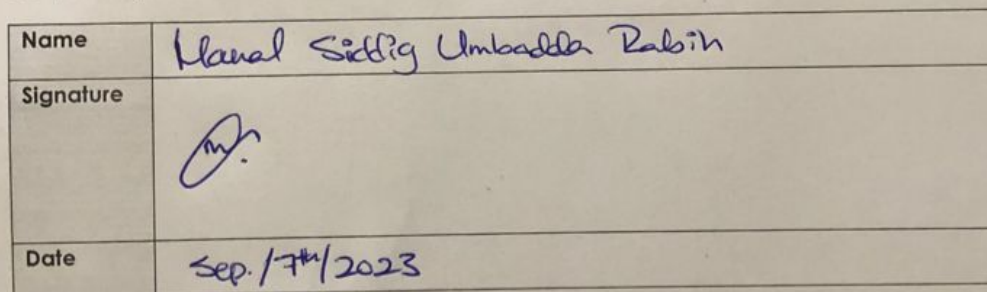 Name Manal Siddig Umbadda Rabih
Signature
Date Sep./7th/2023